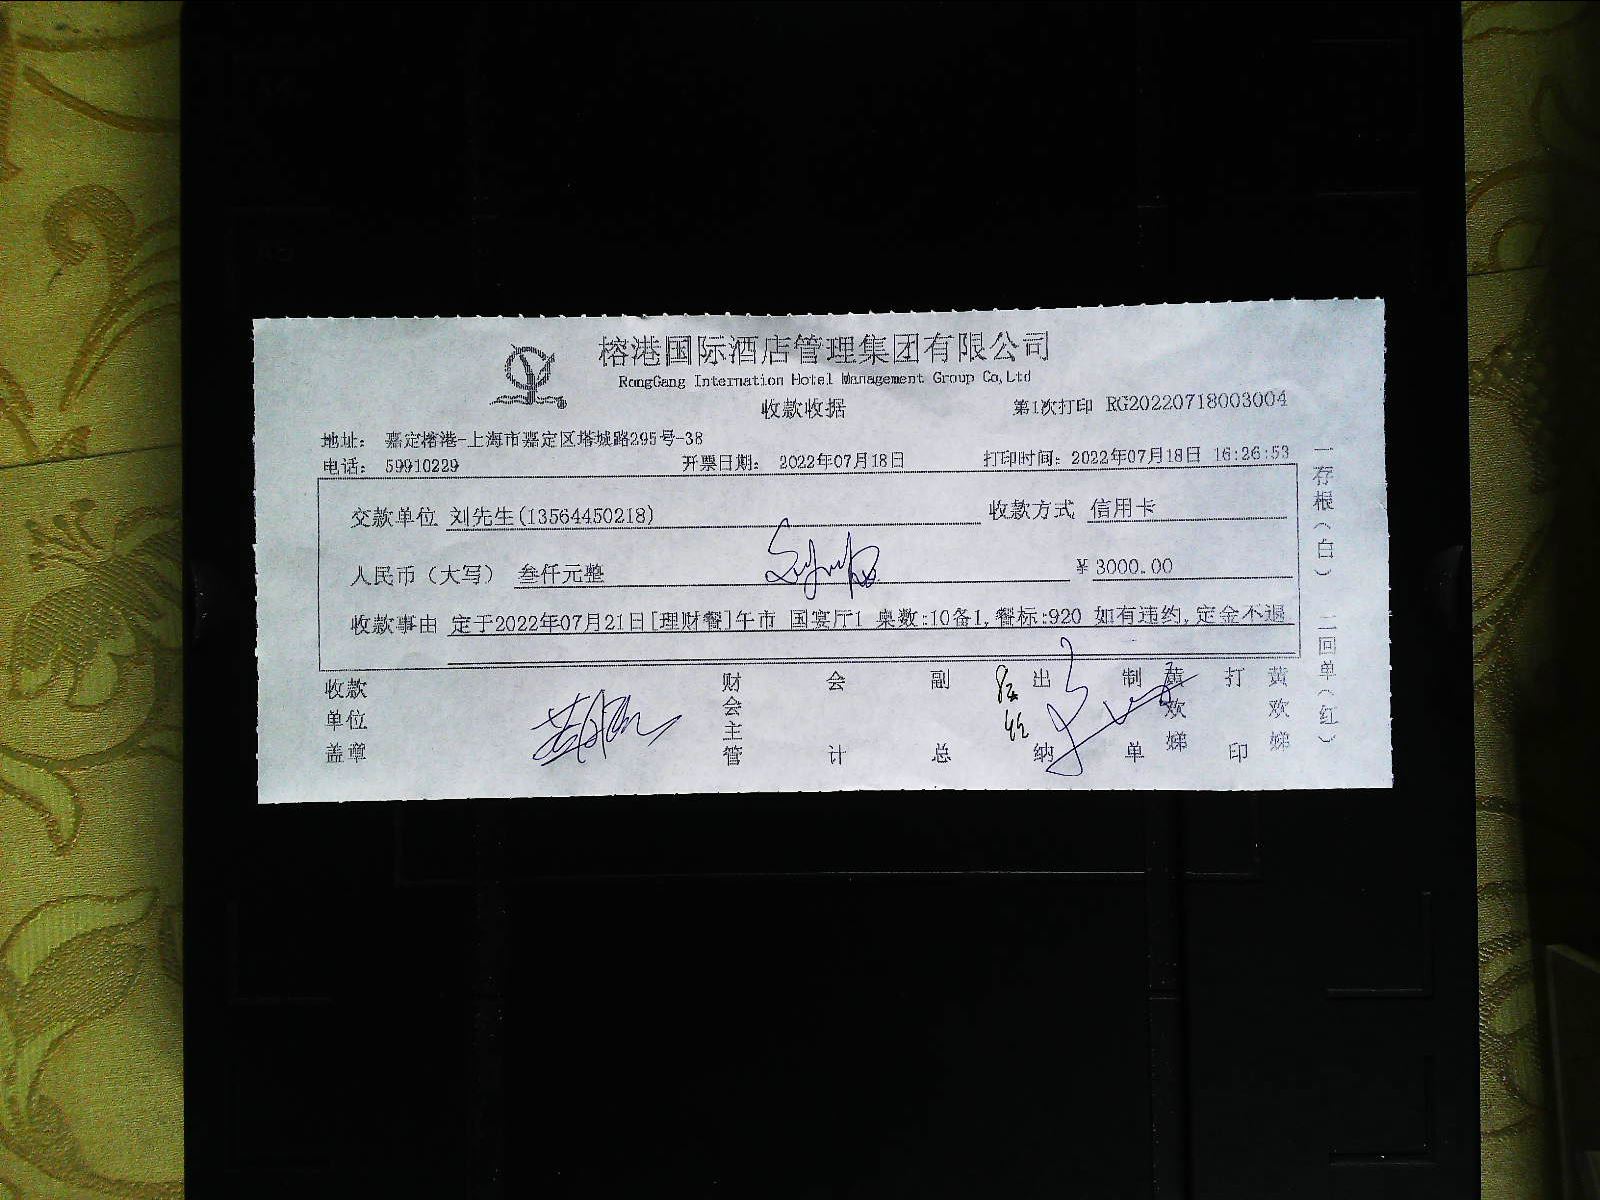 榕港国际酒店管理集团有限公司
RongGang Internation Hotel Management Group Co,Ltd
收款收据
第1次打印 RG20220718003004
地址： 嘉定榕港-上海市嘉定区塔城路295号-38
电话： 59910229 开票日期： 2022年07月18日 打印时间：2022年07月18日 16:26:53
交款单位 刘先生(13564450218) 收款方式 信用卡
人民币（大写） 叁仟元整 ¥3000.00
收款事由 定于2022年07月21日[理财餐]午市 国宴厅1 桌数:10备1,餐标:920 如有违约,定金不退
收款单位盖章 财会主管 会计 副总 出纳 制单 黄欢娣 打印 黄欢娣
一存根（白） 二回单（红）